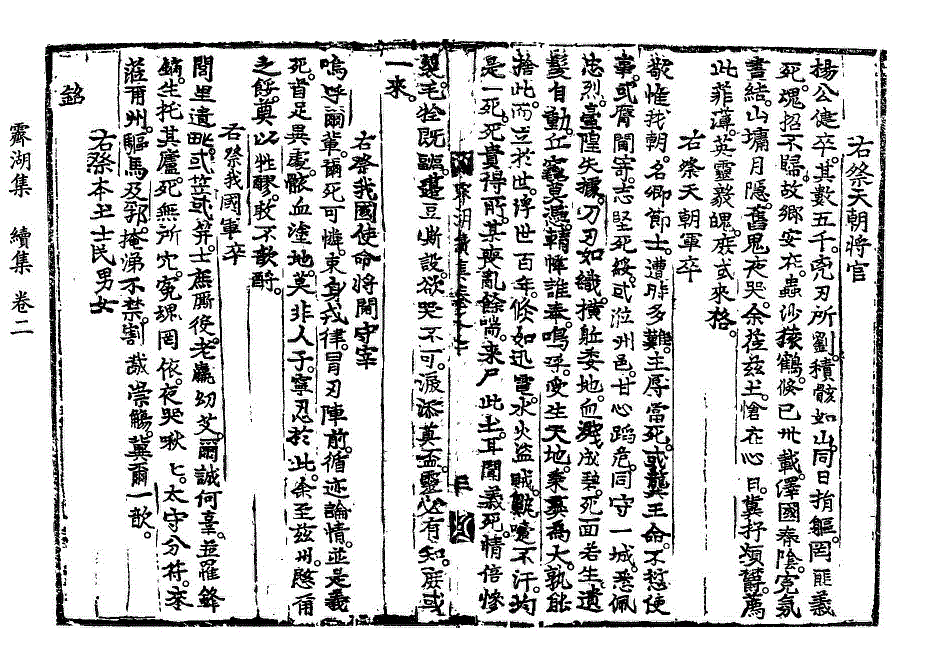 右祭天朝将官
楊公健卒其數五千兇刃所劉積骸如山同日捐軀罔匪義
死魂招不歸故鄉安在蟲沙猿鶴倏已卅載澤國春陰冤氣
書結山墉月隱舊鬼夜哭余莅玆土愴在心目冀抒頌奠薦
此菲薄英靈毅魄庶或來格
右祭天朝軍卒
欷惟我朝名卿節士遭時多難主辱當死或龔王命不愆使
事或膺閫寄志堅死綏或涖州邑甘心蹈危同守一城悉佩
忠烈臺隍失據刀刃如織橫屍委地血濺成碧死面若生遺
髮自動丘寃莫憑精悼誰奉嗚乎受生天地秉彝爲大孰能
捨此而立於世浮世百年倏如迅電水火盜賊
是一死死貴得所某喪亂餘喘來尸此土耳聞義死情倍慘
裂毛牷既臨邊豆斯設欲哭不可淚添奠盃靈必有知庶或
一來
右祭我國使命將閫守宰
嗚呼爾輩爾死可憐束身戎律冒刃陣前循迹論情並是義
死首足異處骸血塗地莫非人子寧忍於此余至玆州慇爾
之餒奠以牲醪敢不歆酹
右祭我國軍卒
閭里遺甿或笠或笄士䕩居後老羸幼艾爾誠何辜並罹鋒
鏑生托其廬死無所穴寃魂罔依夜哭啾匕太守分符來
莅爾州驅馬及郊掩涕不禁割哉崇觴冀爾一歆
右祭本土士民男女
銘
霽湖集 續集 卷二